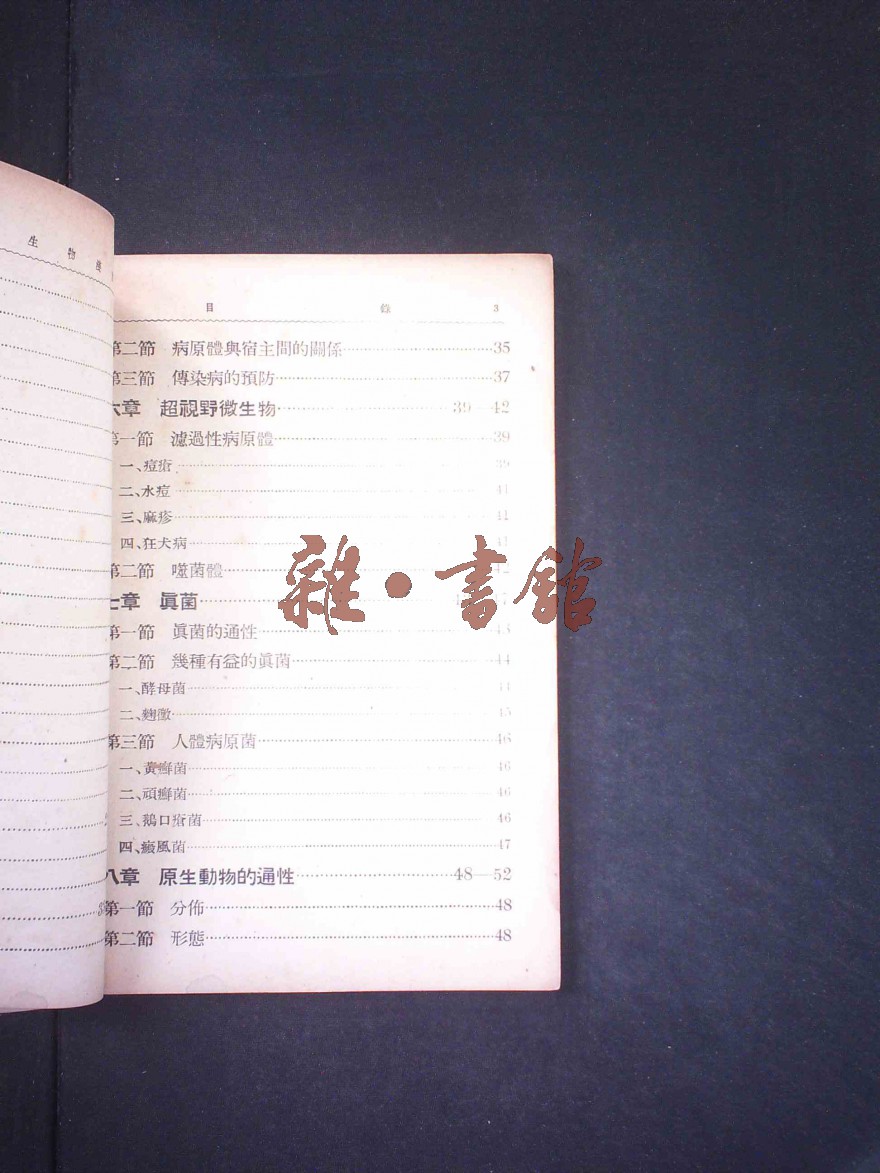 生物
目錄 3
第二節 病原體與宿主間的關係 35
第三節 傳染病的預防 37
六章 超視野微生物 39—42
第一節 濾過性病原體 39
一、痘瘡 39
二、水痘 41
三、麻疹 41
四、狂犬病 41
第二節 噬菌體 42
七章 眞菌
第一節 眞菌的通性 43
第二節 幾種有益的眞菌 44
一、酵母菌 44
二、麴黴 45
第三節 人體病原菌 46
一、黃癬菌 46
二、頑癬菌 46
三、鵝口瘡菌 46
四、癜風菌 47
八章 原生動物的通性 48—52
第一節 分佈 48
第二節 形態 48
雜·書館